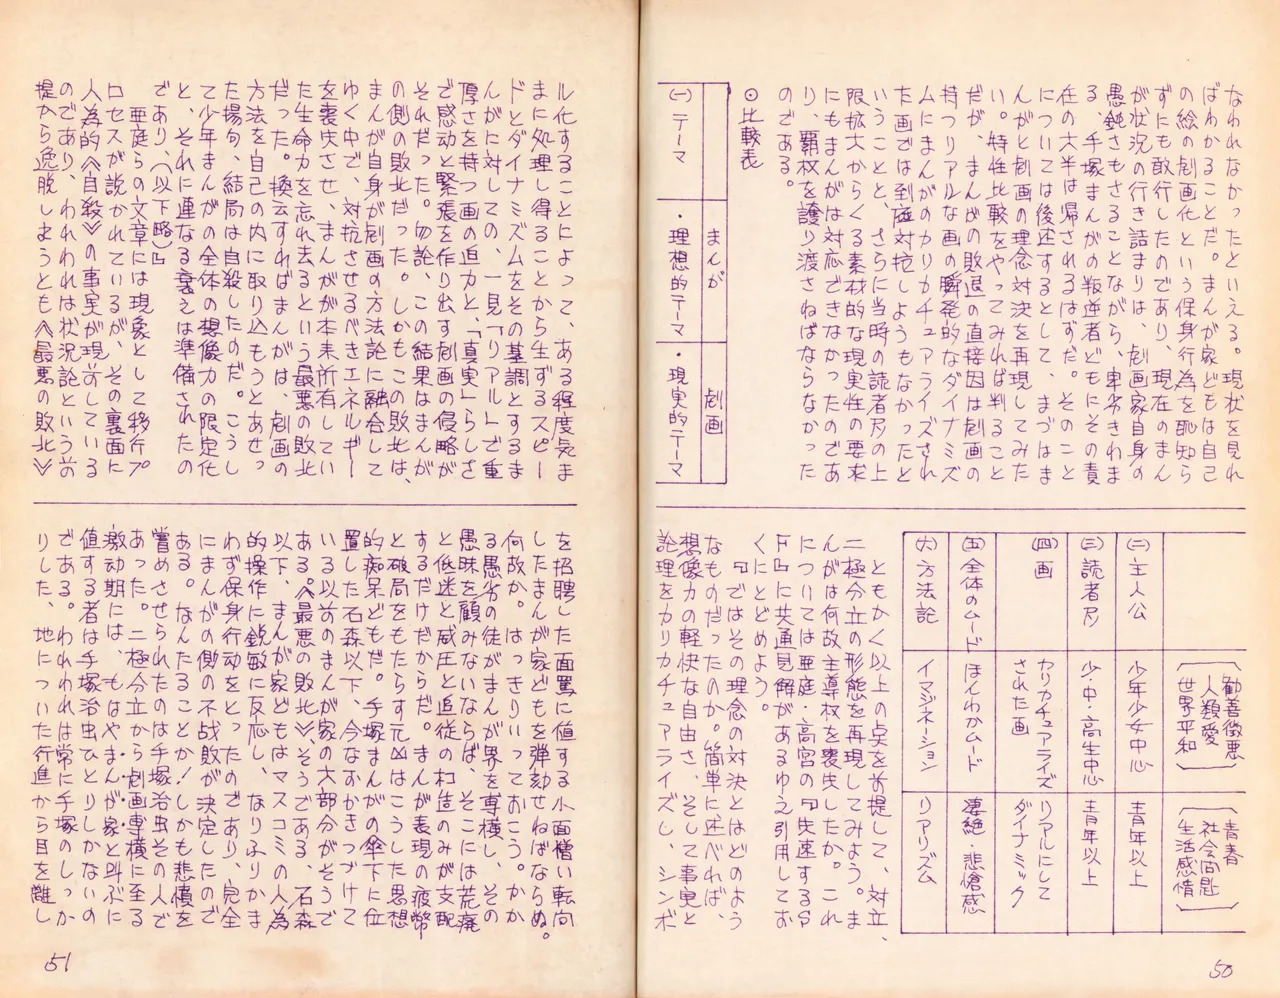 なわれなかったといえる。現状を見れ
ばわかることだ。まんが家どもは自己
の絵の劇画化という保身行為を恥知ら
ずにも敢行したのであり、現在のまん
が状況の行き詰まりは、劇画家自身の
愚鈍さもさることながら、率先きわま
る、手塚まんがの叛逆者どもにその責
任の大半は帰されるはずだ。そのこと
については後述するとして、まづはま
んがと劇画の理念対決を再現してみた
い。特性比較をやってみれば判ること
だが、まんがの敗退の直接因は劇画の
持つリアルな画の瞬発的なダイナミズ
ムにまんがのカリカチュアライズされ
た画では到底対抗しようもなかったと
いうことと、さらに当時の読者層の上
限拡大からくる素材的な現実性の要求
にもまんがは対応できなかったのであ
り、覇权を譲り渡さねばならなかった
のである。
⊙比較表
まんが
劇画
(一)テーマ
・理想的テーマ
・現実的テーマ
〔勧善徴悪
人類愛
世界平和〕
〔青春
社会問題
生活感情〕
(二)主人公
少年少女中心
青年以上
(三)読者層
少・中・高生中心
青年以上
(四)画
カリカチュアライズ
された画
リアルにして
ダイナミック
(五)全体のムード
ほんわかムード
凄絶・悲愴感
(六)方法論
イマジネーション
リアリズム
ともかく以上の点を前提して、対立、
二極分立の形態を再現してみよう。ま
んがは何故主導权を喪失したか。これ
については亜庭・高宮の『失速するS
F』に共通見解があるゆえ引用してお
くにとどめよう。
『ではその理念の対決とはどのよう
なものだったのか。簡単に述べれば、
想像力の軽快な自由さ、そして事実と
論理をカリカチュアライズし、シンボ
50
ル化することによって、ある程度気ま
まに処理し得ることから生ずるスピー
ドとダイナミズムをその基調とするま
んがに対しての、一見「リアル」で重
厚さを持つ画の迫力と、「真実」らしさ
で感動と緊張を作り出す劇画の侵略が
それだった。勿論、この結果はまんが
の側の敗北だった。しかもこの敗北は、
まんが自身が劇画の方法論に融合して
ゆく中で、対抗させるべきエネルギー
を喪失させ、まんがが本来所有してい
た生命力を忘れ去るという最悪の敗北
だった。換云すればまんがは、劇画の
方法を自己の内に取り込もうとあせっ
た揚句、結局は自殺したのだ。こうし
て少年まんがの全体の想像力の限定化
と、それに連なる衰えは準備されたの
であり、(以下略)』
亜庭らの文章には現象として移行プ
ロセスが説かれているが、その裏面に
人為的《自殺》の事実が現前している
のであり、われわれは状況論という前
提から逸脱しようとも《最悪の敗北》
を招聘した面罵に値する小面憎い転向
したまんが家どもを弾劾せねばならぬ。
何故か。はっきりいっておこう。かか
る愚劣の徒がまんが界を専横し、その
愚昧を顧みないならば、そこには荒廃
と低迷と威圧と追従の構造のみが支配
するだけだからだ。まんが表現の疲弊
と破局をもたらす元凶はこうした思想
的痴呆どもだ。手塚まんがの傘下に位
置した石森以下、今なおかきつづけて
いる以前のまんが家の大部分がそうで
ある。《最悪の敗北》、そうである、石森
以下、まんが家どもはマスコミの人為
的操作に鋭敏に反応し、なりふりかま
わず保身行動をとったのであり、完全
にまんがの側の不战敗が決定したので
ある。なんたることか!しかも悲憤を
嘗めさせられたのは手塚治虫その人で
あった。二極分立から劇画専横に至る
激動期には、もはやまんが家と叫ぶに
値する者は手塚治虫ひとりしかないの
である。われわれは常に手塚のしっか
りした、地についた行進から目を離し
51